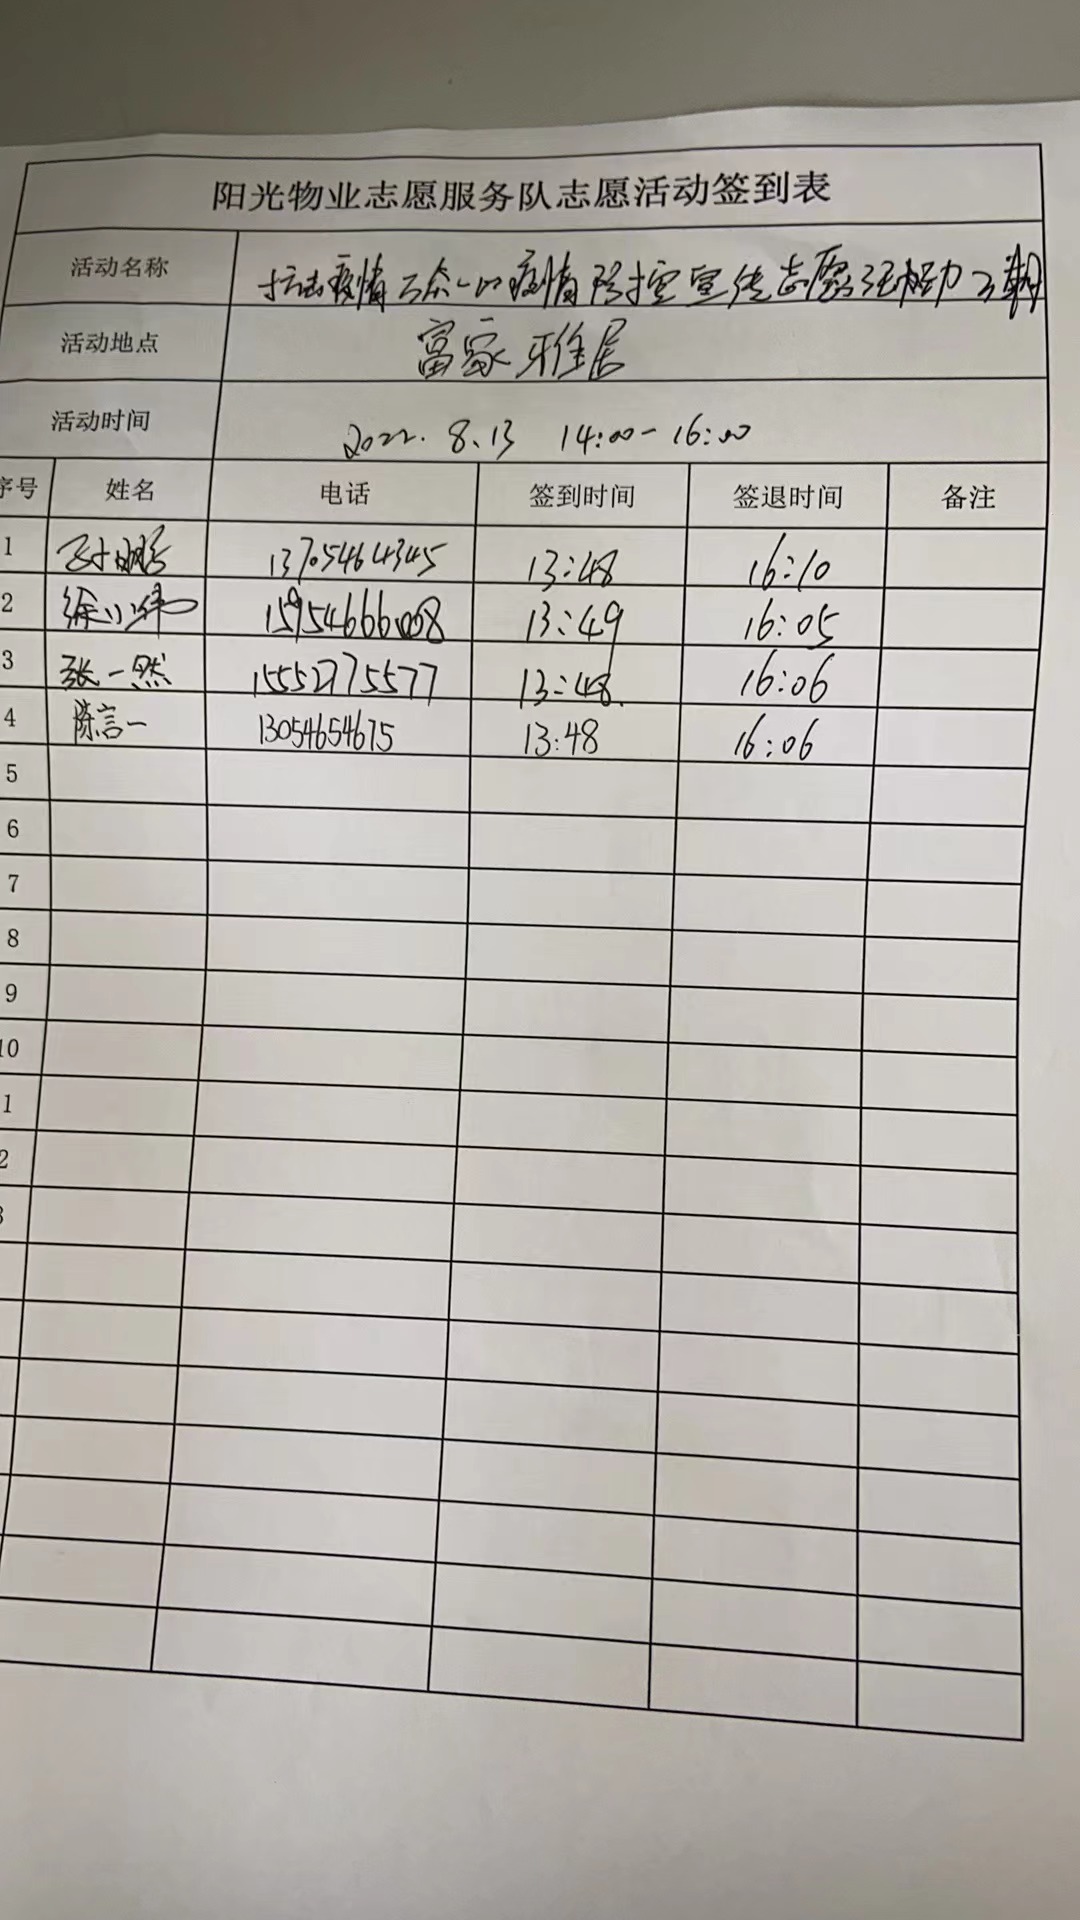 阳光物业志愿服务队志愿活动签到表
活动名称 抗击疫情 疫情防控宣传志愿活动
活动地点 富家雅居
活动时间 2022.8.13 14:00-16:00
序号 姓名 电话 签到时间 签退时间 备注
1 13705464345 13:48 16:10
2 徐小 15954666008 13:49 16:05
3 张一然 15552775577 13:48 16:06
4 陈言一 13054654675 13:48 16:06
5
6
7
8
9
10
1
2
3